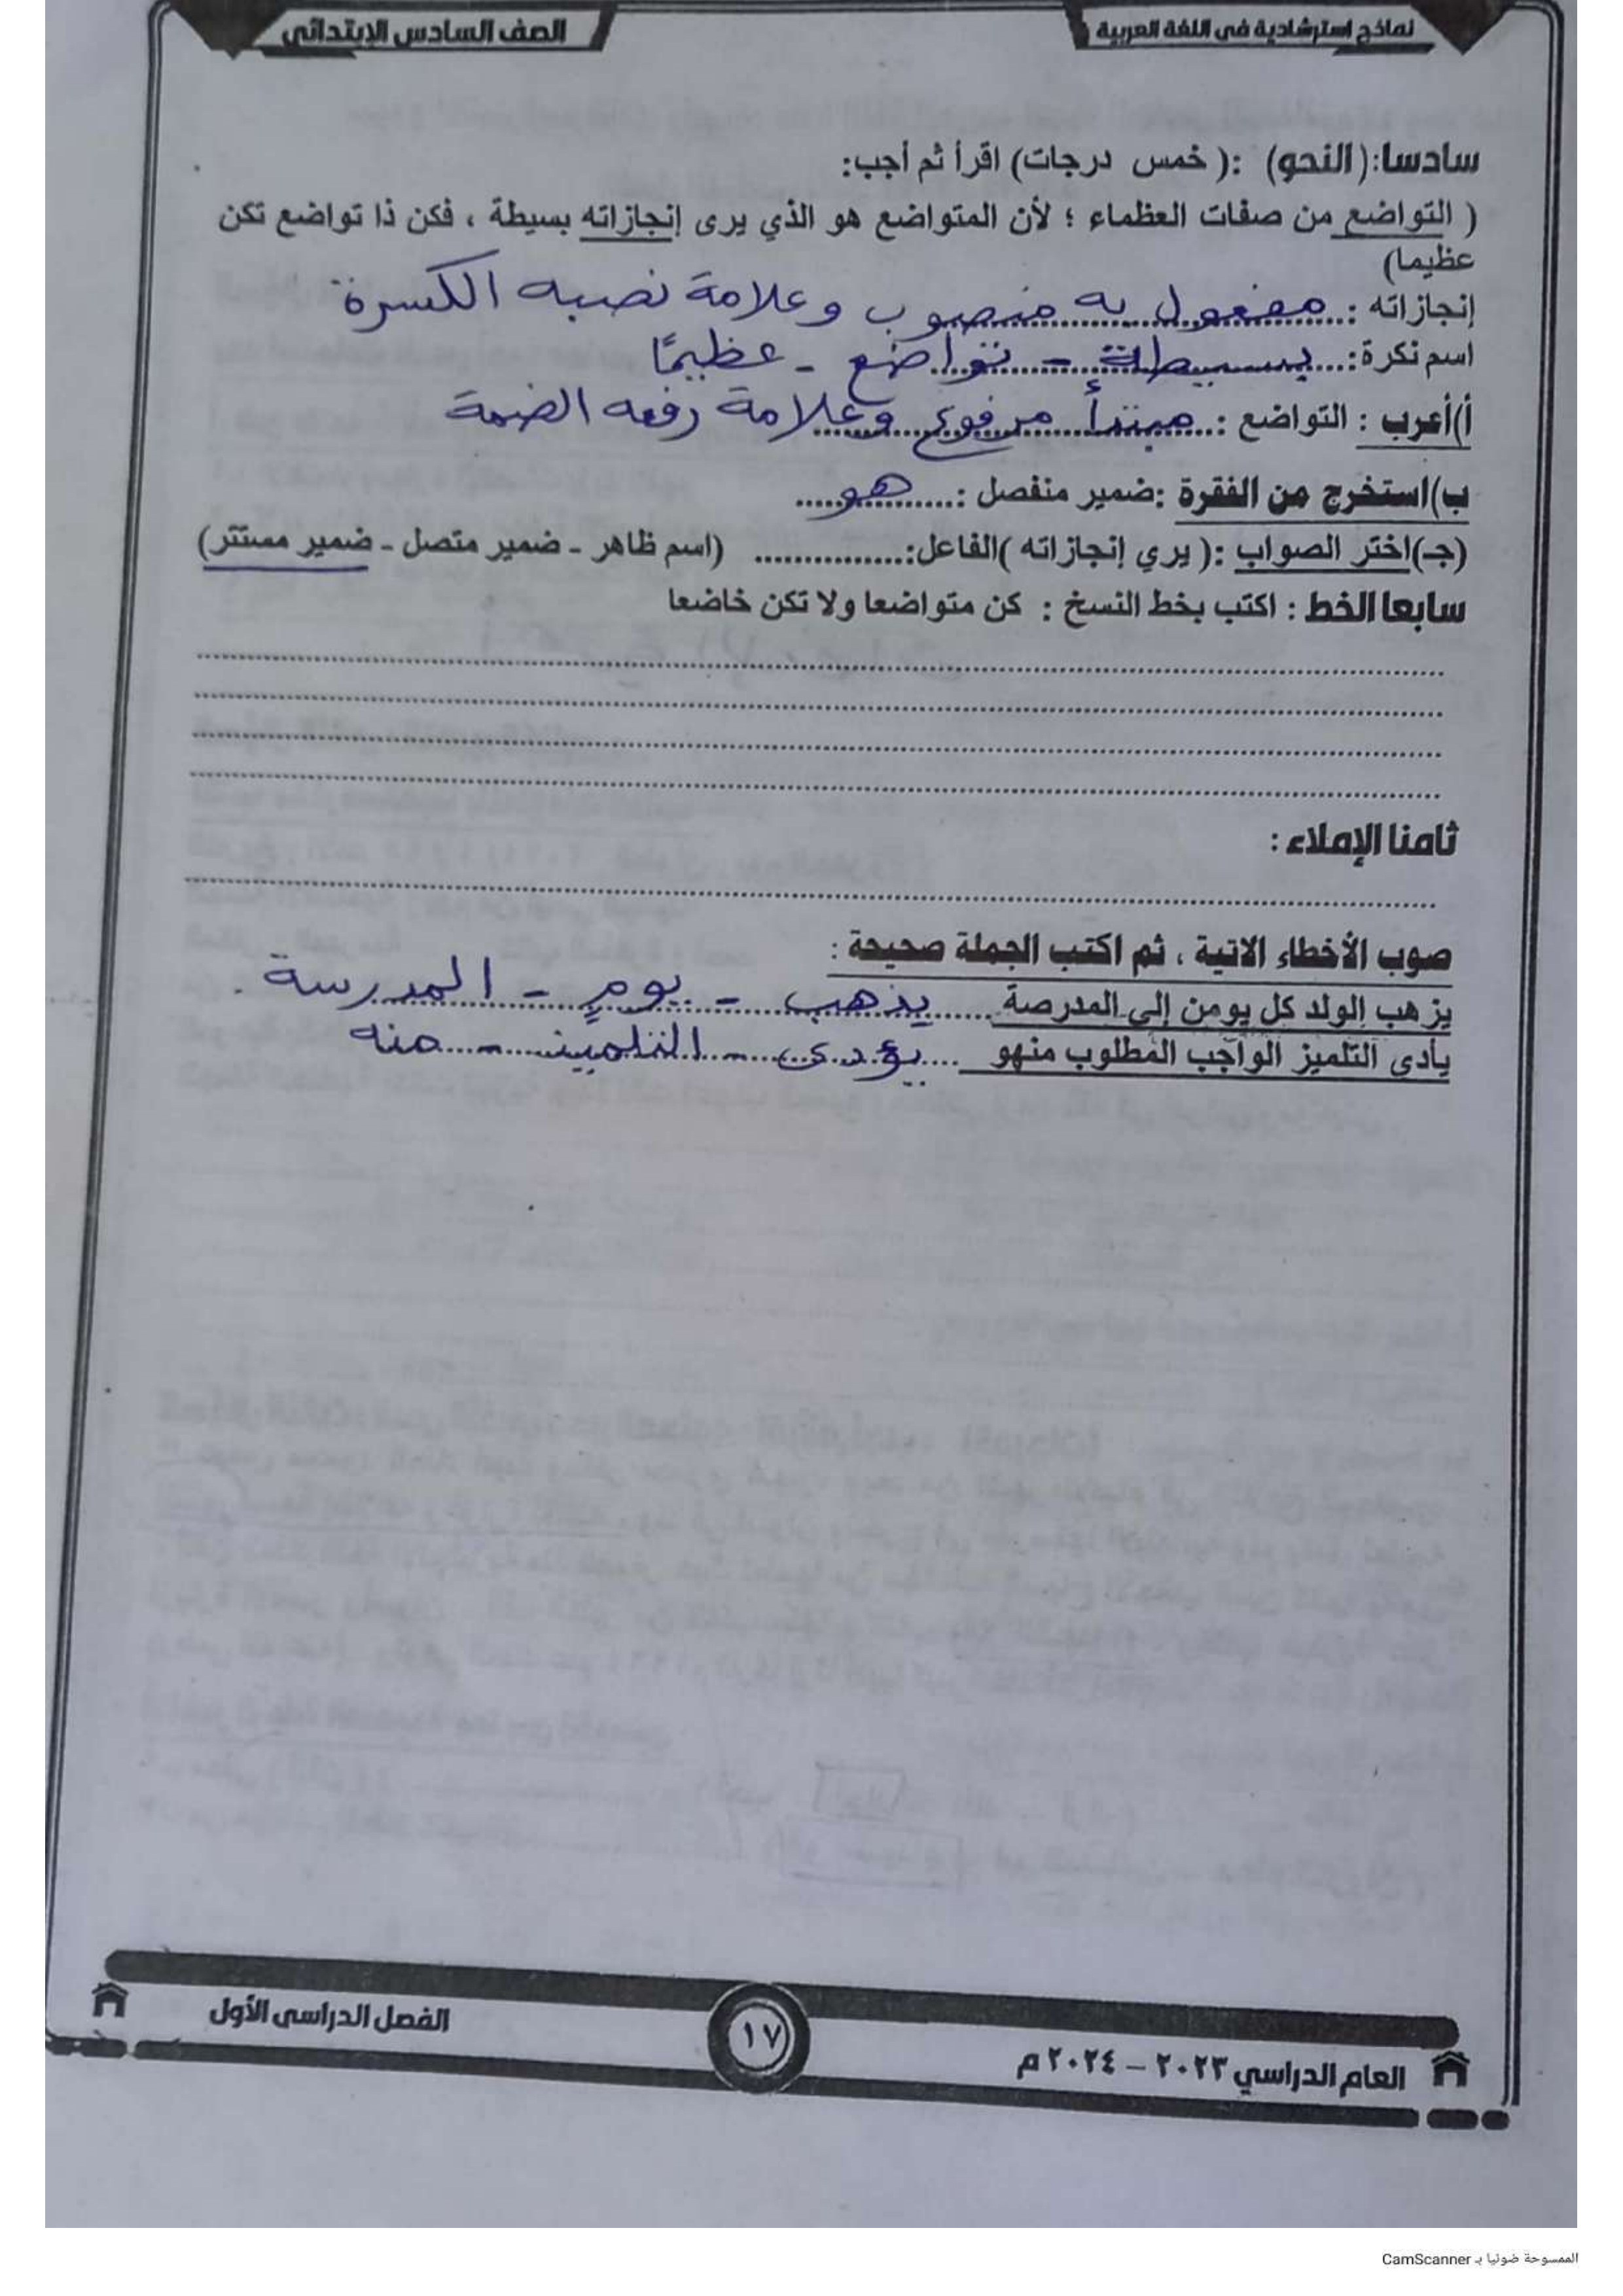 نماذج استرشادية في اللغة العربية
الصف السادس الابتدائي
سادسا: (النحو) : ( خمس درجات) اقرأ ثم أجب:
( التواضع من صفات العظماء ؛ لأن المتواضع هو الذي يرى إنجازاته بسيطة ، فكن ذا تواضع تكن
عظيما)
إنجازاته : مفعول به منصوب وعلامة نصبه الكسرة
اسم نكرة: بسيطة - تواضع - عظيمًا
أ)أعرب : التواضع : مبتدأ مرفوع وعلامة رفعه الضمة
ب)استخرج من الفقرة :ضمير منفصل : هو
(جـ)اختر الصواب :( يري إنجازاته )الفاعل:............... (اسم ظاهر - ضمير متصل - ضمير مستتر)
سابعا الخط : اكتب بخط النسخ : كن متواضعا ولا تكن خاضعا
ثامنا الإملاء :
صوب الأخطاء الاتية ، ثم اكتب الجملة صحيحة :
يزهب الولد كل يومن إلى المدرصة يذهب - يومٍ - المدرسة .
يأدى التلميز الواجب المطلوب منهو يؤدى - التلميذ - منه
الفصل الدراسي الأول
١٧
العام الدراسي ٢٠٢٣ – ٢٠٢٤ م
الممسوحة ضوئيا بـ CamScanner